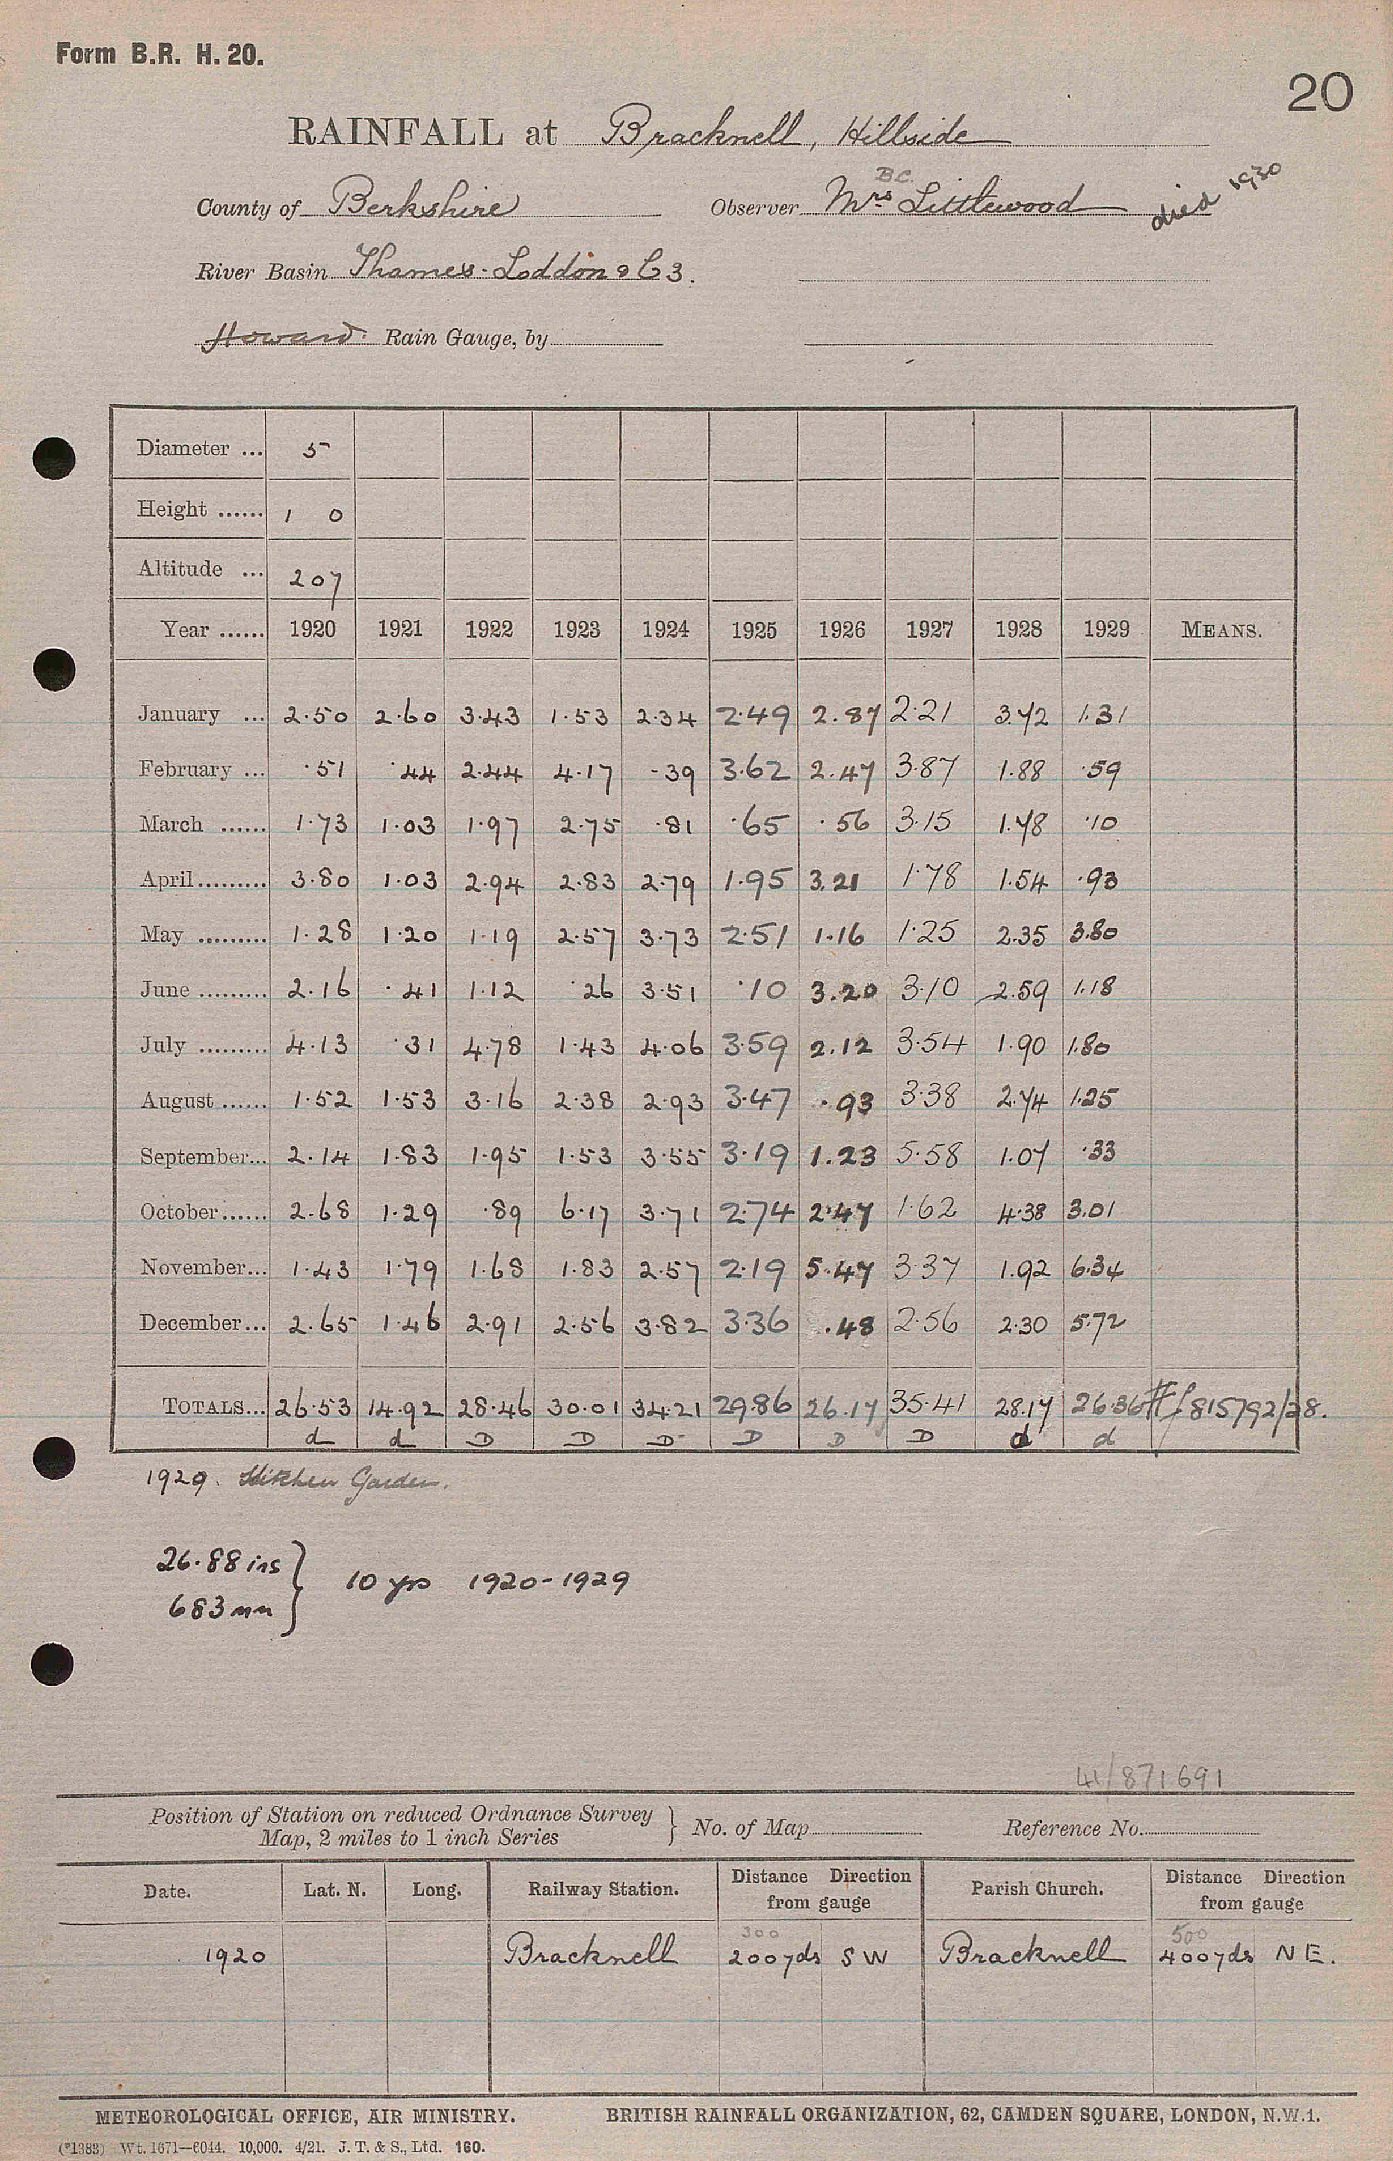 Form B.R. H. 20.
20
RAINFALL at Bracknell, Hillside
B.C.
County of Berkshire Observer Mrs Littlewood died 1930
River Basin Thames - Loddon & C3.
Howard Rain Gauge, by
Diameter ... 5
Height ...... 1 0
Altitude ... 207
Year ...... 1920 1921 1922 1923 1924 1925 1926 1927 1928 1929 MEANS.
January ... 2.50 2.60 3.43 1.53 2.34 2.49 2.87 2.21 3.72 1.31
February ... .51 .44 2.44 4.17 .39 3.62 2.47 3.87 1.88 .59
March ...... 1.73 1.03 1.97 2.75 .81 .65 .56 3.15 1.78 .10
April ......... 3.80 1.03 2.94 2.83 2.79 1.95 3.21 1.78 1.54 .93
May ......... 1.28 1.20 1.19 2.57 3.73 2.51 1.16 1.25 2.35 3.80
June ......... 2.16 .41 1.12 .26 3.51 .10 3.20 3.10 2.59 1.18
July ......... 4.13 .31 4.78 1.43 4.06 3.59 2.12 3.54 1.90 1.80
August ...... 1.52 1.53 3.16 2.38 2.93 3.47 .93 3.38 2.74 1.25
September... 2.14 1.83 1.95 1.53 3.55 3.19 1.23 5.58 1.07 .33
October ...... 2.68 1.29 .89 6.17 3.71 2.74 2.47 1.62 4.38 3.01
November... 1.43 1.79 1.68 1.83 2.57 2.19 5.47 3.37 1.92 6.34
December... 2.65 1.46 2.91 2.56 3.82 3.36 .48 2.56 2.30 5.72
TOTALS... 26.53 14.92 28.46 30.01 34.21 29.86 26.17 35.41 28.17 26.36 815792/28.
d d D D D D D D d d
1929. Kitchen Garden.
26.88 ins } 10 yrs 1920-1929
683 mm
41/871691
Position of Station on reduced Ordnance Survey } No. of Map Reference No.
Map, 2 miles to 1 inch Series
Date. Lat. N. Long. Railway Station. Distance Direction from gauge Parish Church. Distance Direction from gauge
300 500
1920 Bracknell 200 yds SW Bracknell 400 yds NE.
METEOROLOGICAL OFFICE, AIR MINISTRY. BRITISH RAINFALL ORGANIZATION, 62, CAMDEN SQUARE, LONDON, N.W.1.
(*1383) Wt. 1671—6044. 10,000. 4/21. J. T. & S., Ltd. 160.